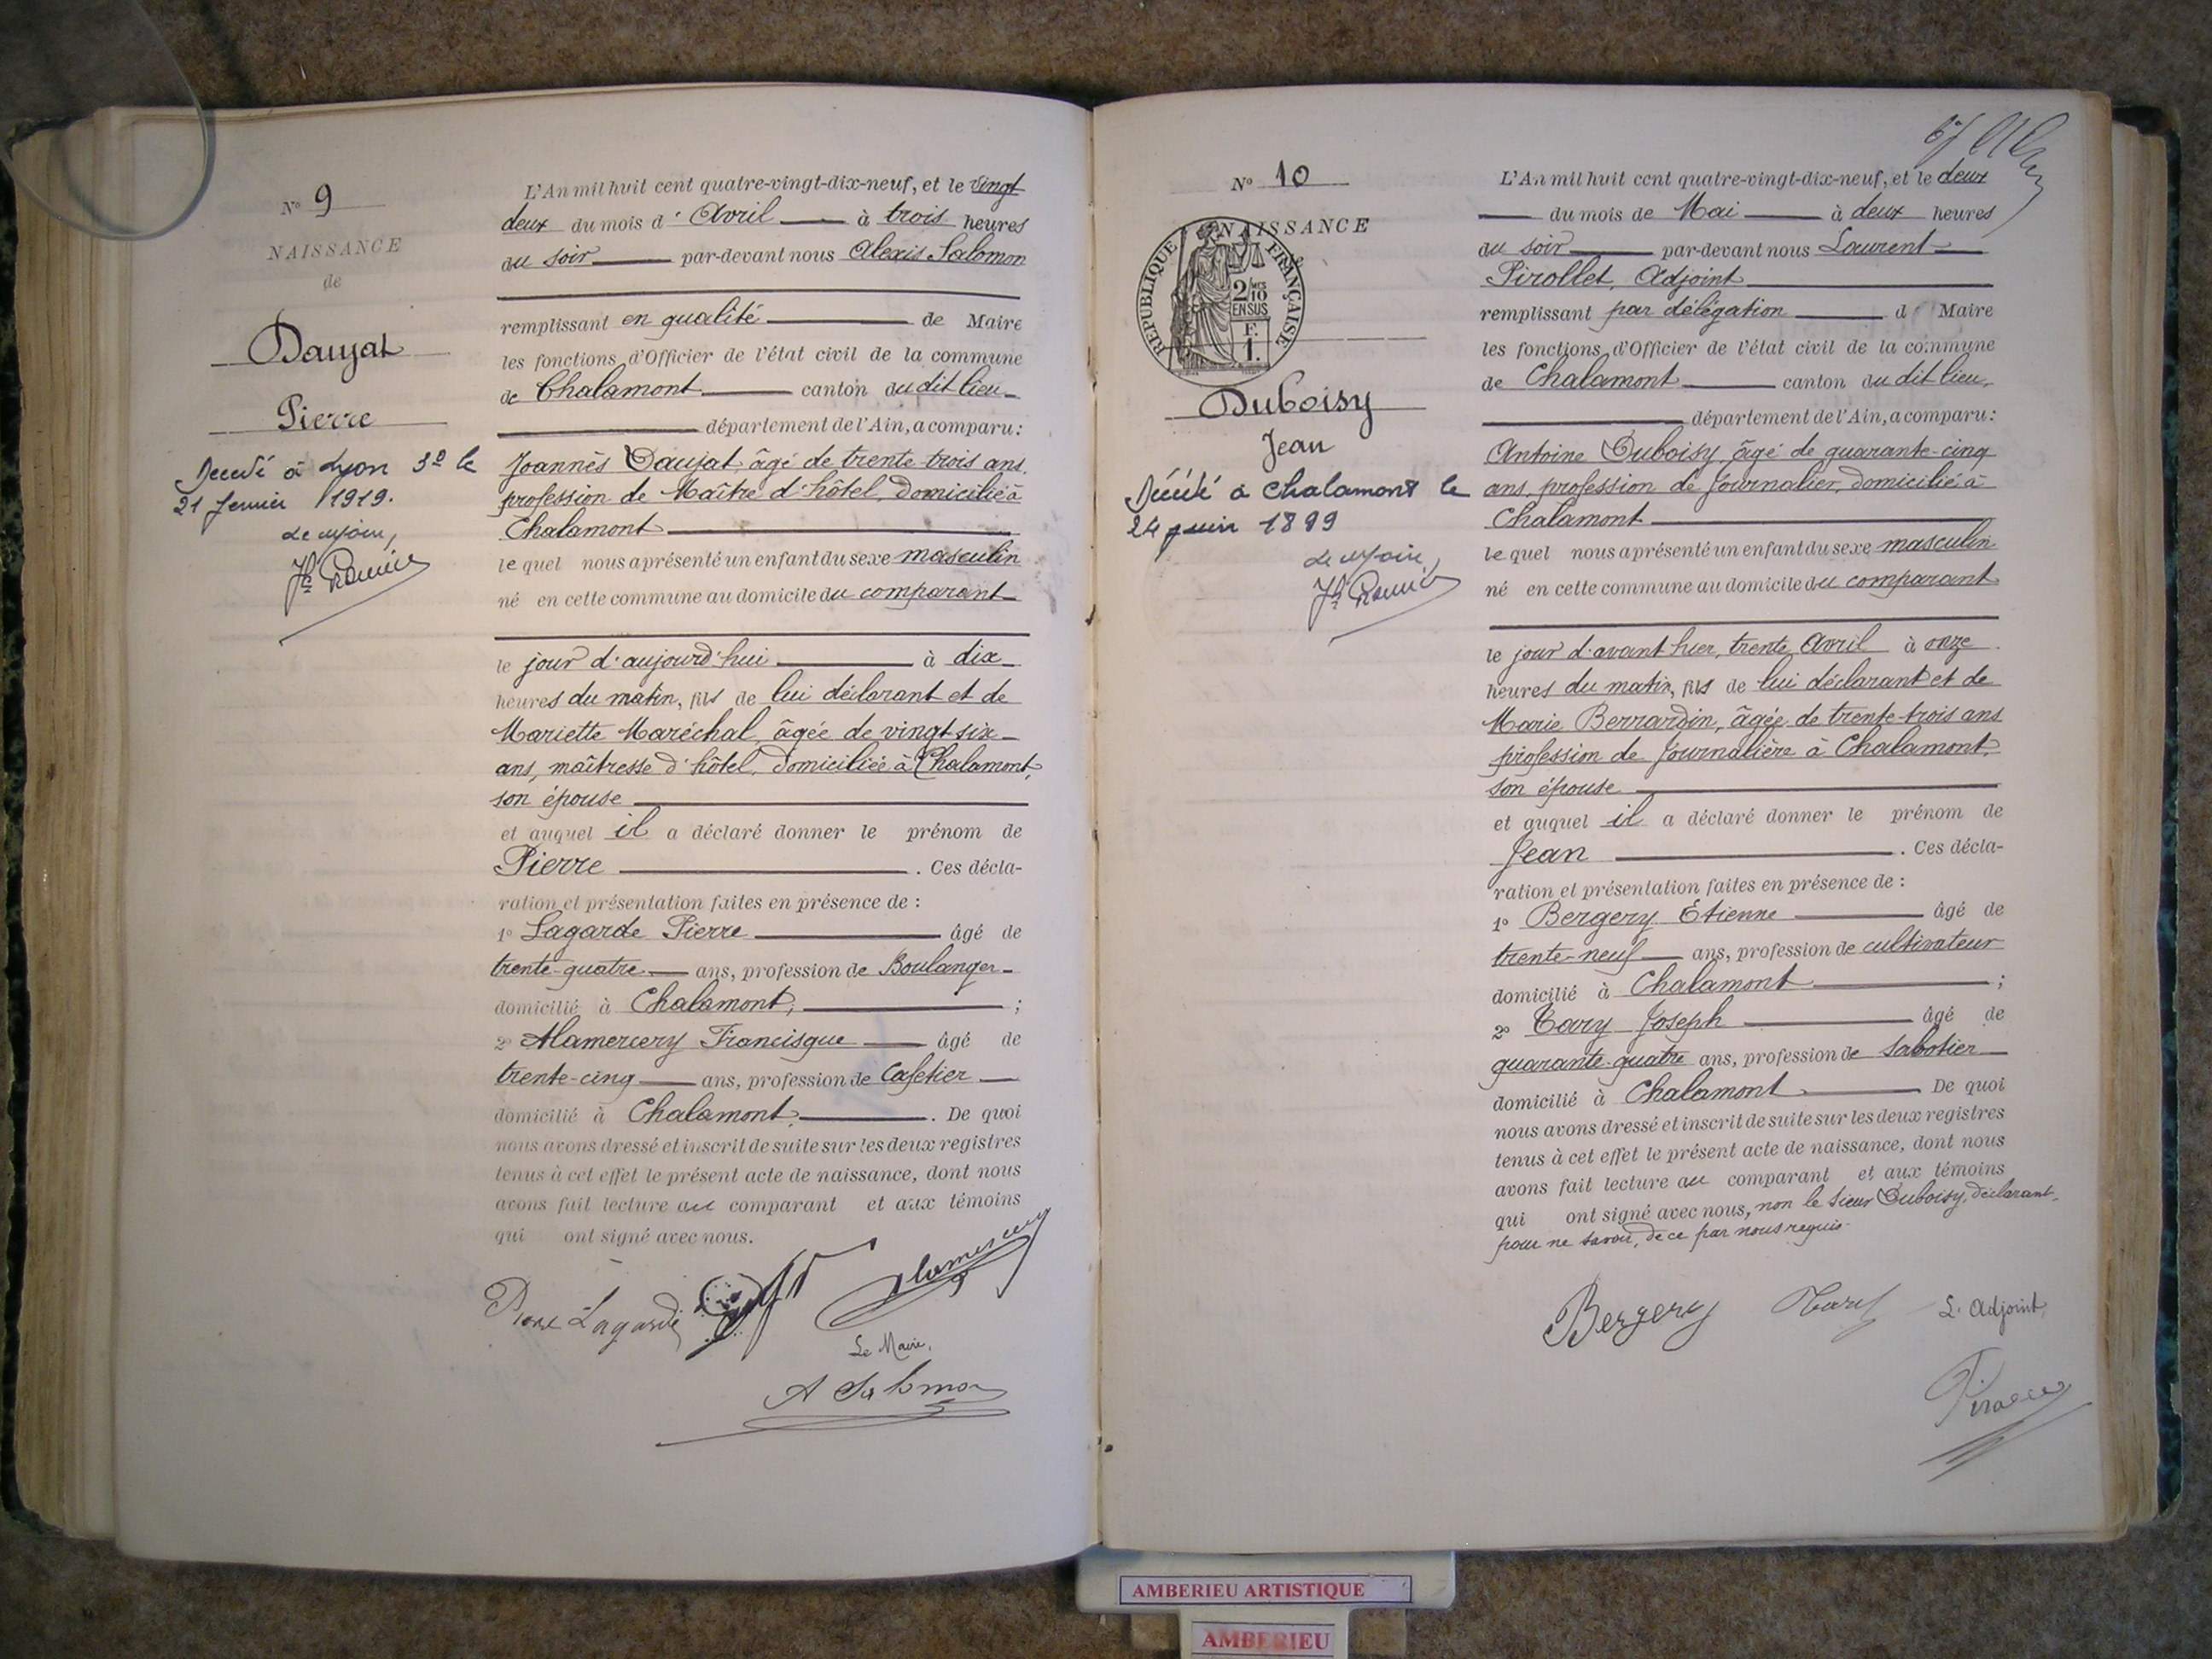 N° 9
NAISSANCE
de
Daujat
Pierre
Décédé à Lyon 3e le
21 Janvier 1919.
Le Maire,
L'An mil huit cent quatre-vingt-dix-neuf, et le vingt
deux du mois d'Avril à trois heures
du soir par-devant nous Alexis Salomon
remplissant en qualité de Maire
les fonctions d'Officier de l'état civil de la commune
de Chalamont canton dudit lieu
département de l'Ain, a comparu :
Joannès Daujat, âgé de trente-trois ans,
profession de Maître d'hôtel, domicilié à
Chalamont
lequel nous a présenté un enfant du sexe masculin
né en cette commune au domicile du comparant
le jour d'aujourd'hui à dix
heures du matin, fils de lui déclarant et de
Mariette Maréchal, âgée de vingt-six
ans, maîtresse d'hôtel, domiciliée à Chalamont,
son épouse
et auquel il a déclaré donner le prénom de
Pierre . Ces décla-
ration et présentation faites en présence de :
1° Lagarde Pierre âgé de
trente-quatre ans, profession de Boulanger
domicilié à Chalamont, ;
2° Alamercery Francisque âgé de
trente-cinq ans, profession de Cafetier
domicilié à Chalamont, . De quoi
nous avons dressé et inscrit de suite sur les deux registres
tenus à cet effet le présent acte de naissance, dont nous
avons fait lecture au comparant et aux témoins
qui ont signé avec nous.
Pierre Lagarde
Alamercery
Le Maire,
A Salomon
N° 10
NAISSANCE
RÉPUBLIQUE FRANÇAISE
2/10 MES
EN SUS
F.
1.
Duboisy
Jean
Décédé à Chalamont le
24 juin 1899
Le Maire,
L'An mil huit cent quatre-vingt-dix-neuf, et le deux
du mois de Mai à deux heures
du soir par-devant nous Laurent
Pirollet, Adjoint
remplissant par délégation d Maire
les fonctions d'Officier de l'état civil de la commune
de Chalamont canton dudit lieu,
département de l'Ain, a comparu :
Antoine Duboisy, âgé de quarante-cinq
ans, profession de Journalier, domicilié à
Chalamont
lequel nous a présenté un enfant du sexe masculin
né en cette commune au domicile du comparant
le jour d'avant hier, trente Avril à onze
heures du matin, fils de lui déclarant et de
Marie Berrardin, âgée de trente-trois ans
profession de Journalière à Chalamont,
son épouse
et auquel il a déclaré donner le prénom de
Jean . Ces décla-
ration et présentation faites en présence de :
1° Bergery Étienne âgé de
trente-neuf ans, profession de cultivateur
domicilié à Chalamont ;
2° Tavy Joseph âgé de
quarante-quatre ans, profession de Sabotier
domicilié à Chalamont De quoi
nous avons dressé et inscrit de suite sur les deux registres
tenus à cet effet le présent acte de naissance, dont nous
avons fait lecture au comparant et aux témoins
qui ont signé avec nous, non le sieur Duboisy, déclarant,
pour ne savoir, de ce par nous requis.
Bergery
L'Adjoint,
AMBERIEU ARTISTIQUE
AMBERIEU